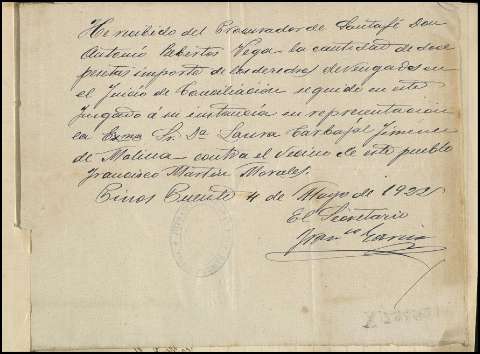 He recibido del Procurador de Santafé Don
Antonio Cabirtos Vega - la cantidad de doce
pesetas importe de los derechos devengados en
el Juicio de Conciliación seguido en este
Juzgado á su instancia en representación
la Exma Sr. Dª Laura Carbajal Jimenez
de Molina - contra el vecino de este pueblo
Francisco Martin Morales.
Cinos Cuente 4 de Mayo de 1922
El Secretario
Franco Garcia